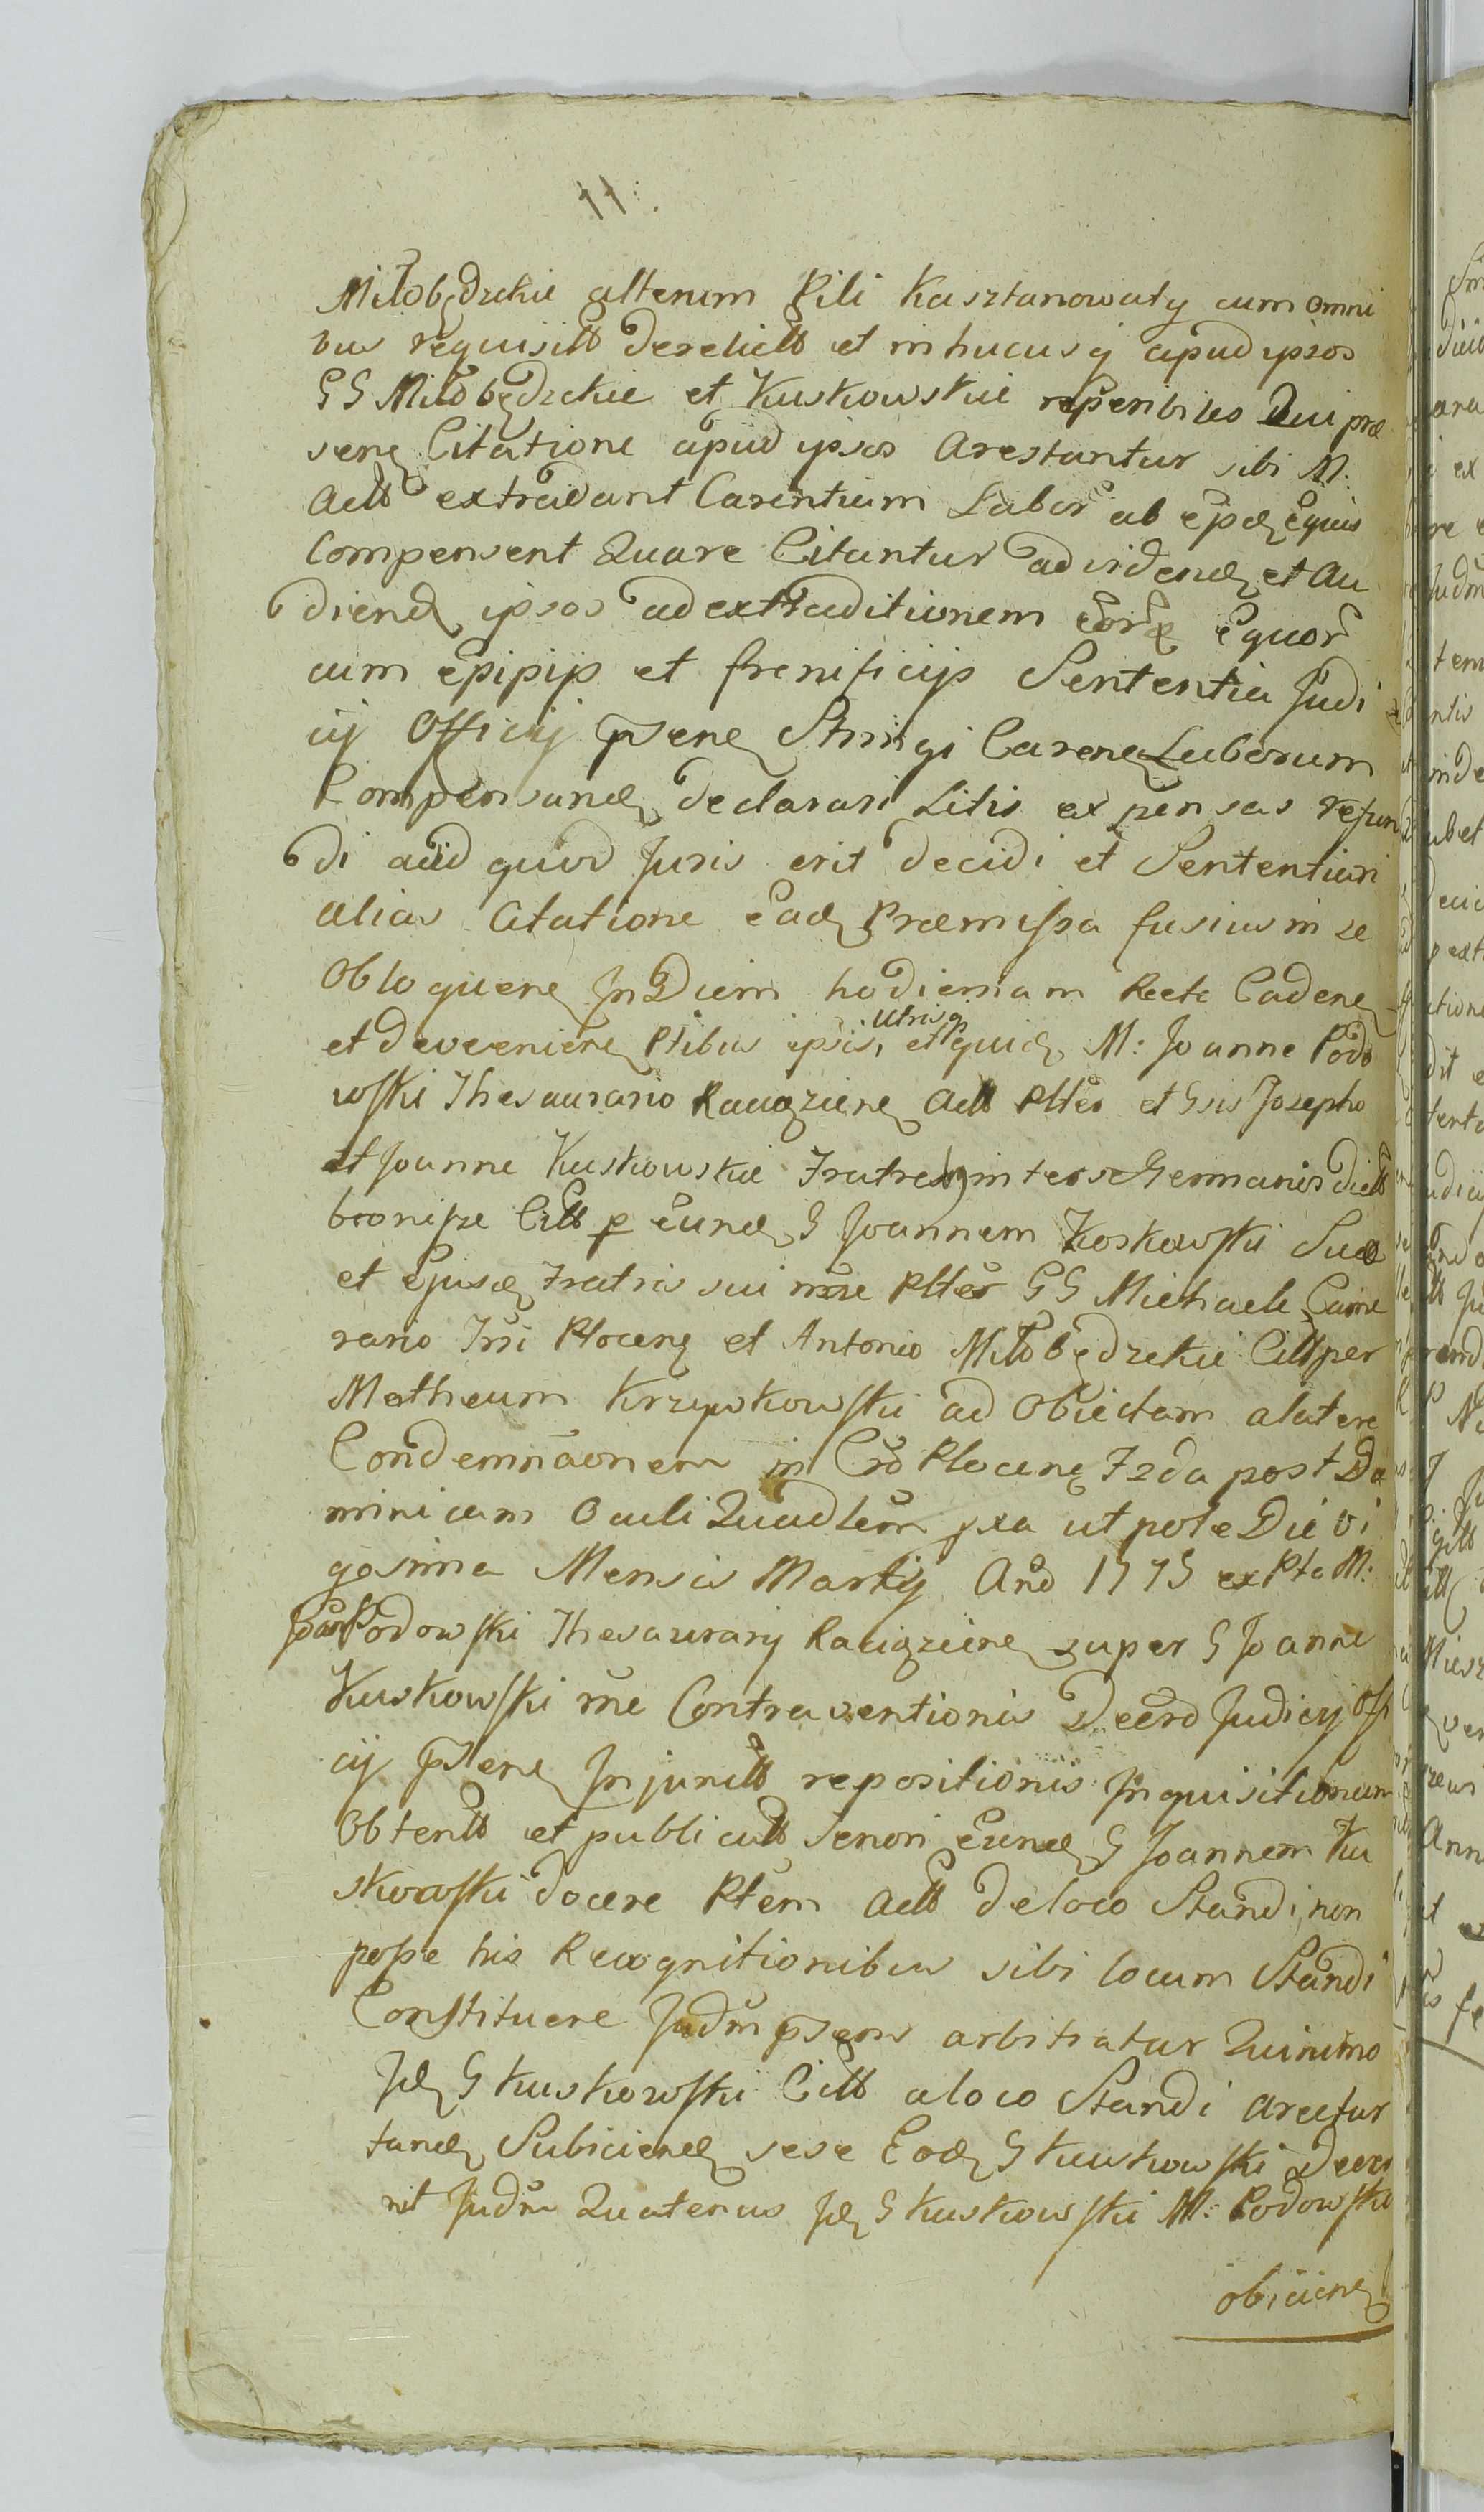 11.
Miłobędzkie alterum Pili Kasztanowaty cum omni
bus requisitt derelictt et in hucusq apud ipsos
GG Miłobędzkie et Kuskowskie reperibiles Qui præ
senq Citatione apud ipsos Arestantur sibi M.
Actt extradant Carentium Labor ab eqdq Equis
Compensent Quare Citantur ad vidend et Au
diend ipsos ad extraditionem eorq Equor
cum epipijs et frenificijs Sententia Judi
cij Officij psenq Stringi Carenq Laborum
Compensand declarari Litis expensas refun
di aud quid Juris erit decidi et Sententiari
alias Citatione Eadq Præmissa fusius in se
Obloquenq In Diem hodiernam Recte Cadenq
et devenienq Ptibus ipsis, utrisq et quidq M: Joanne Podo
wski Thesaurario Raciązienq Actt Plter et Gsis Josepho
et Joanne Kuskowskie Fratribq inter se Germanis dictt
bronisze Citt p eund G Joannem Koskowski Suo
et Ejusdq Fratris sui nōe Plter GG Michaele Came
rario Trri Plocenq et Antonio Miłobędzkie Citt per
Matheum Krzywkowski ad Obiectam alatere
Condemnāonem in Crō Plocenq Fzda post Do
minicam Oculi Quadlem pxa utpote Die vi
gesima Mensis Martij Anō 1775 ex Pte M:
Joan Podowski Thesaurarij Raciązienq super G Joanne
Kuskowski rne Contraventionis Decrō Judicij Offi
cij psenq Injunctt repositionis Inquisitionum
Obtentt et publicatt Senori Eund G Joannem Ku
skowski docere Ptem Actt de loco Standi, non
posse his Recognitionibus sibi locum Standi
Constituere Judm psens arbitratur Quinimo
Jdq G Kuskowski Citt a loco Standi arcetur
tandq Subiciend sese Eodq G Kuskowski Decer
nit Judm Quatenus Jdq G Kuskowski M: Podowski
obicienq